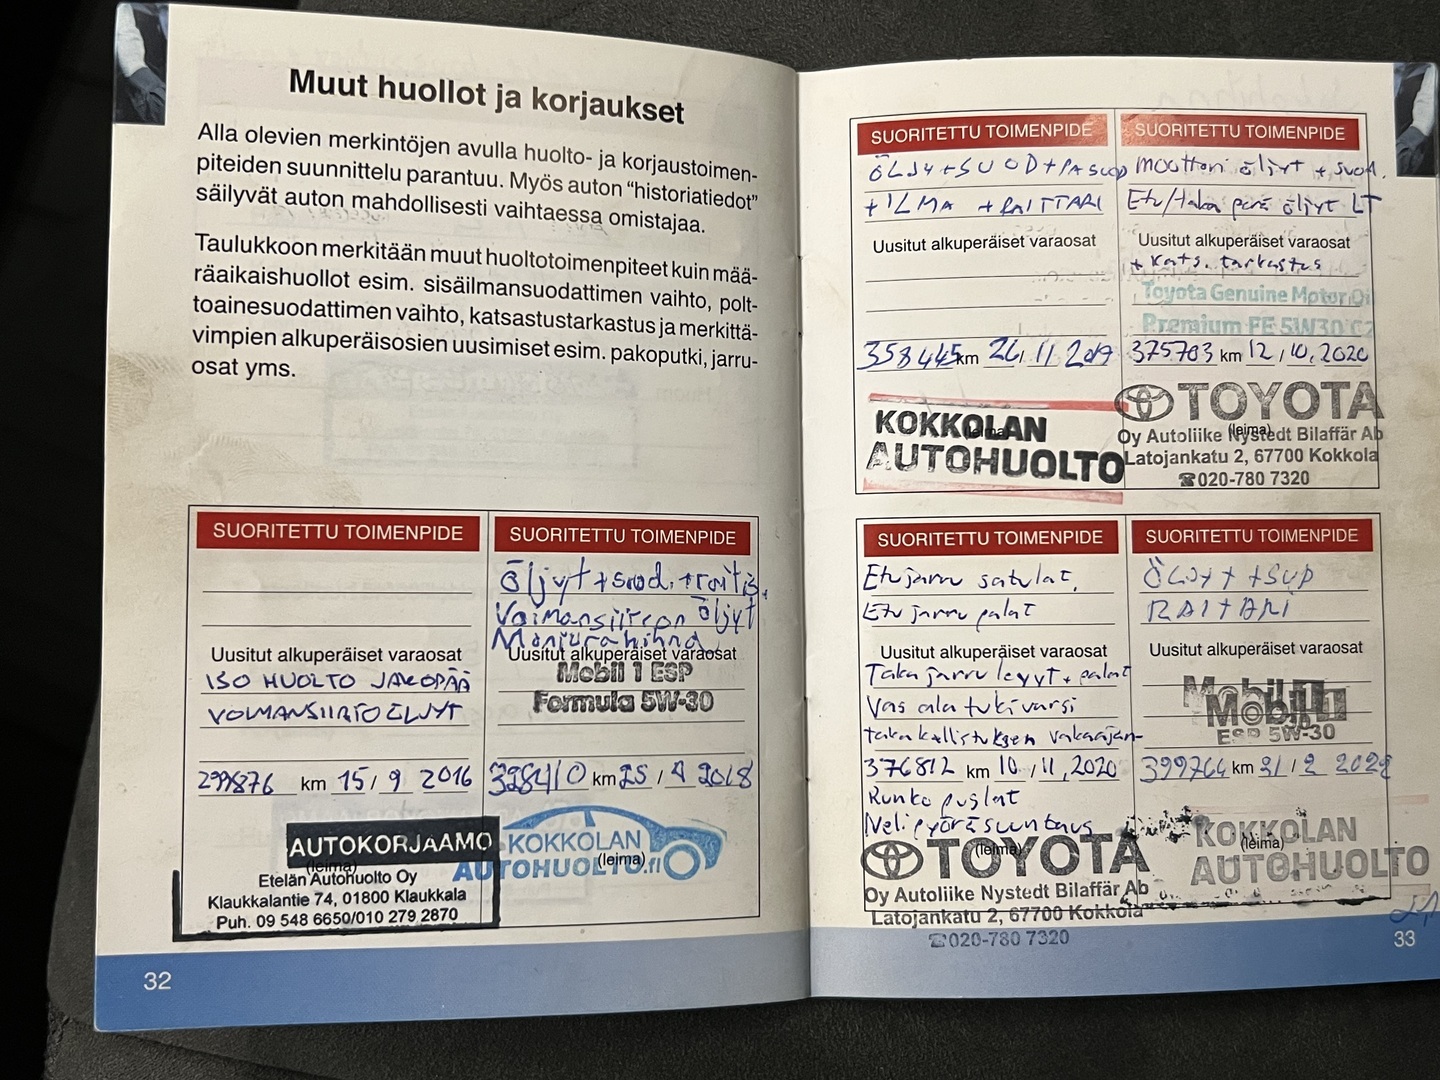 Muut huollot ja korjaukset
Alla olevien merkintöjen avulla huolto- ja korjaustoimen-
piteiden suunnittelu parantuu. Myös auton "historiatiedot"
säilyvät auton mahdollisesti vaihtaessa omistajaa.
Taulukkoon merkitään muut huoltotoimenpiteet kuin mää-
räaikaishuollot esim. sisäilmansuodattimen vaihto, polt-
toainesuodattimen vaihto, katsastustarkastus ja merkittä-
vimpien alkuperäisosien uusimiset esim. pakoputki, jarru-
osat yms.
SUORITETTU TOIMENPIDE
Uusitut alkuperäiset varaosat
ISO HUOLTO JAKOPÄÄ
VOIMANSIIRTO ÖLJYT
299876 km 15/9 2016
AUTOKORJAAMO
(leima)
Etelän Autohuolto Oy
Klaukkalantie 74, 01800 Klaukkala
Puh. 09 548 6650/010 279 2870
SUORITETTU TOIMENPIDE
Öljyt + suod. + raitis.
Voimansiirron öljyt
Moniurahihna
Uusitut alkuperäiset varaosat
Mobil 1 ESP
Formula 5W-30
328410 km 25/4 2018
KOKKOLAN
AUTOHUOLTO.fi
(leima)
32
SUORITETTU TOIMENPIDE
ÖLJY+SUOD+PA SUOD
+ILMA +RAITTARI
Uusitut alkuperäiset varaosat
358445 km 26/11 2019
KOKKOLAN
(leima)
AUTOHUOLTO
SUORITETTU TOIMENPIDE
Moottori öljyt + suod.
Etu/taka perä öljyt LT
Uusitut alkuperäiset varaosat
+ kats. tarkastus
Toyota Genuine Motor Oi
Premium FE 5W30 C2
375703 km 12/10, 2020
TOYOTA
(leima)
Oy Autoliike Nystedt Bilaffär Ab
Latojankatu 2, 67700 Kokkola
☎020-780 7320
SUORITETTU TOIMENPIDE
Etujarru satulat,
Etujarru palat
Uusitut alkuperäiset varaosat
Takajarru levyt + palat
Vas ala tukivarsi
takakallistuksen vakaajan-
376812 km 10/11, 2020
Runko puslat
Nelipyöräsuuntaus
TOYOTA
(leima)
Oy Autoliike Nystedt Bilaffär Ab
Latojankatu 2, 67700 Kokkola
☎020-780 7320
SUORITETTU TOIMENPIDE
ÖLJYT +SUD
RAITARI
Uusitut alkuperäiset varaosat
Mobil 1
ESP 5W-30
399764 km 21/2
KOKKOLAN
(leima)
AUTOHUOLTO
33